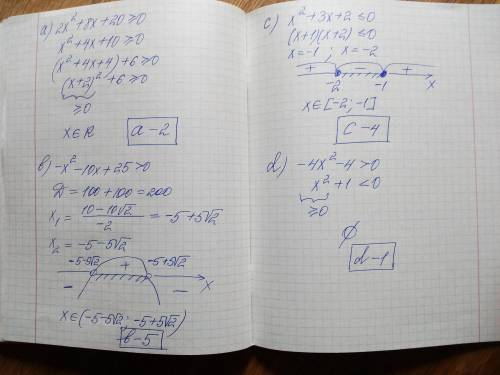 a) 2x²+8x+20≥0
x²+4x+10≥0
(x²+4x+4)+6≥0
(x+2)²+6≥0
≥0
x∈R a-2
b) -x²-10x+25>0
D=100+100=200
x₁=(10-10√2)/-2=-5+5√2
x₂=-5-5√2
-5-5√2 + -5+5√2
- - x
x∈(-5-5√2; -5+5√2)
b-5
c) x²+3x+2≤0
(x+1)(x+2)≤0
x=-1; x=-2
+ - +
-2 -1 x
x∈[-2;-1]
c-4
d) -4x²-4>0
x²+1<0
≥0
∅
d-1